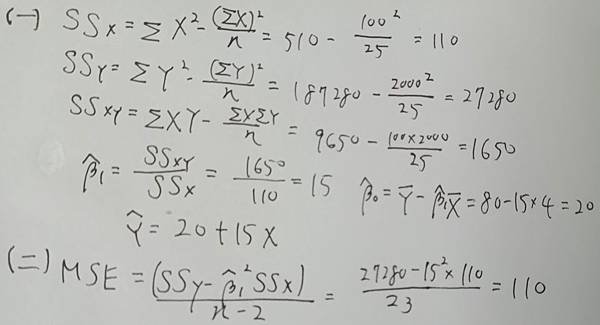 (一) SSx = ΣX² - (ΣX)²/n = 510 - 100²/25 = 110
SSY = ΣY² - (ΣY)²/n = 187280 - 2000²/25 = 27280
SSXY = ΣXY - ΣXΣY/n = 9650 - 100×2000/25 = 1650
β̂₁ = SSXY/SSX = 1650/110 = 15 β̂₀ = Ȳ - β̂₁X̄ = 80 - 15×4 = 20
Ŷ = 20 + 15X
(二) MSE = (SSY - β̂₁²SSX)/n-2 = 27280 - 15²×110/23 = 110